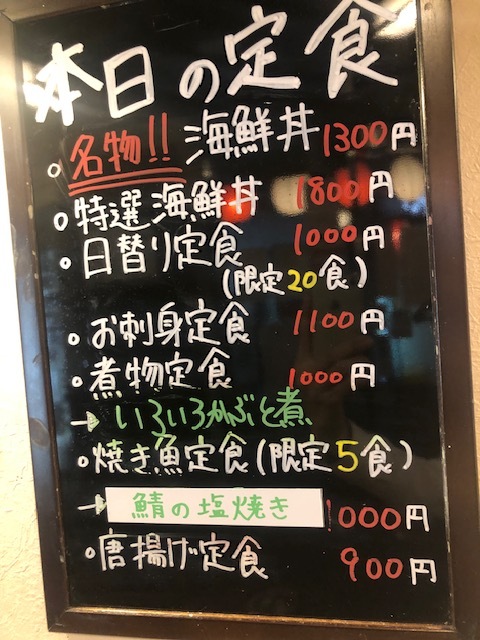 本日の定食
。名物!! 海鮮丼 1300円
。特選海鮮丼 1800円
。日替り定食 1000円
(限定20食)
。お刺身定食 1100円
。煮物定食 1000円
→いろいろかぶと煮
。焼き魚定食(限定5食)
→鯖の塩焼き 1000円
。唐揚げ定食 900円